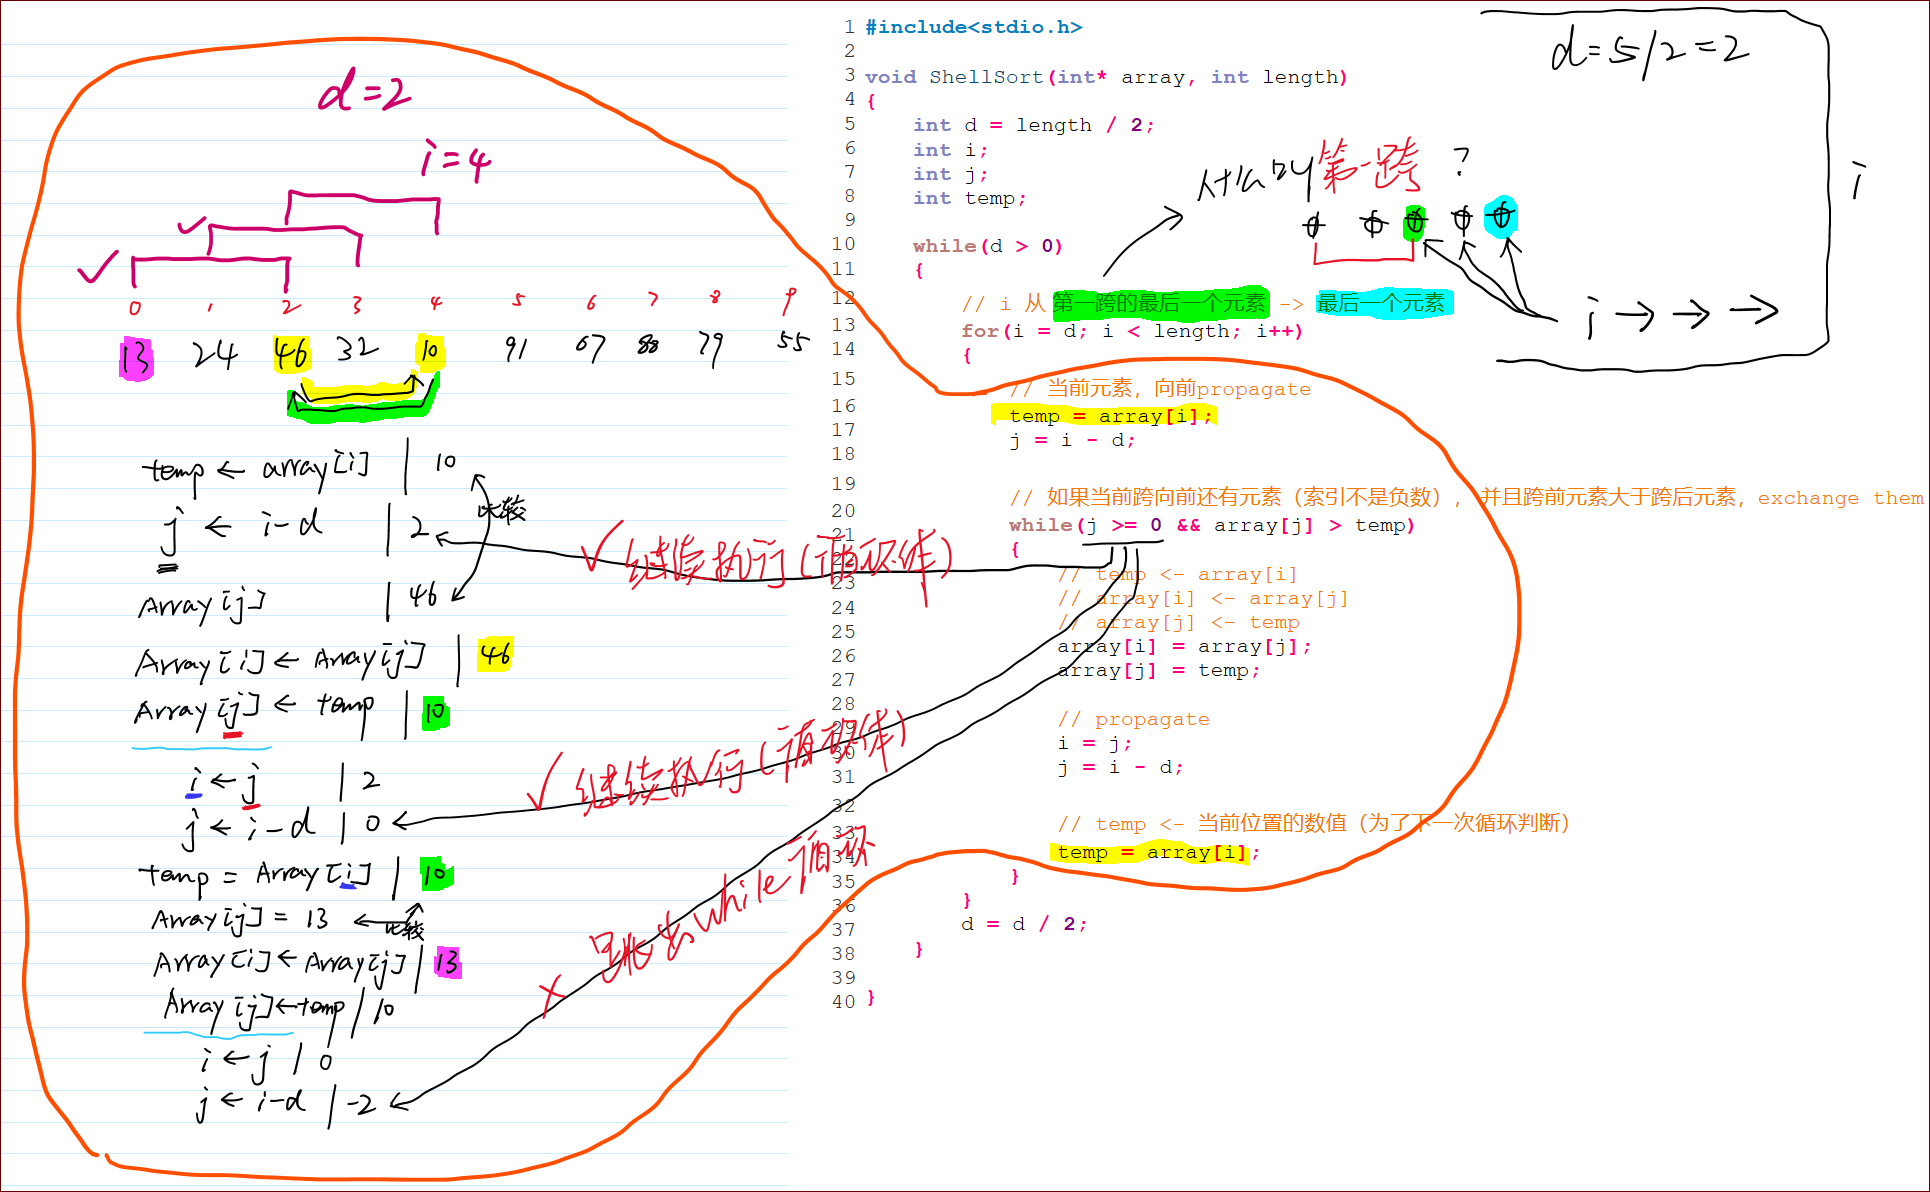 d=2
i=4
0 1 2 3 4 5 6 7 8 9
13 24 46 32 10 91 67 88 79 55
temp ← array[i] | 10
比较
j ← i-d | 2
Array[j] | 46
Array[i] ← Array[j] | 46
Array[j] ← temp | 10
i ← j | 2
j ← i-d | 0
temp = Array[i] | 10
Array[j] = 13
比较
Array[i] ← Array[j] | 13
Array[j] ← temp | 10
i ← j | 0
j ← i-d | -2
✓ 继续执行(循环体)
✓ 继续执行(循环体)
× 跳出while循环
1 #include<stdio.h>
2
3 void ShellSort(int* array, int length)
4 {
5 int d = length / 2;
6 int i;
7 int j;
8 int temp;
9
10 while(d > 0)
11 {
12 // i 从 第一跨的最后一个元素 -> 最后一个元素
13 for(i = d; i < length; i++)
14 {
15 // 当前元素，向前propagate
16 temp = array[i];
17 j = i - d;
18
19 // 如果当前跨向前还有元素（索引不是负数），并且跨前元素大于跨后元素，exchange them
20 while(j >= 0 && array[j] > temp)
21 {
22 // temp <- array[i]
23 // array[i] <- array[j]
24 // array[j] <- temp
25 array[i] = array[j];
26 array[j] = temp;
27
28 // propagate
29 i = j;
30 j = i - d;
31
32 // temp <- 当前位置的数值（为了下一次循环判断）
33 temp = array[i];
34 }
35 }
36 d = d / 2;
37 }
38
39
40 }
d=5/2=2
什么叫第一跨？
i
i → → →